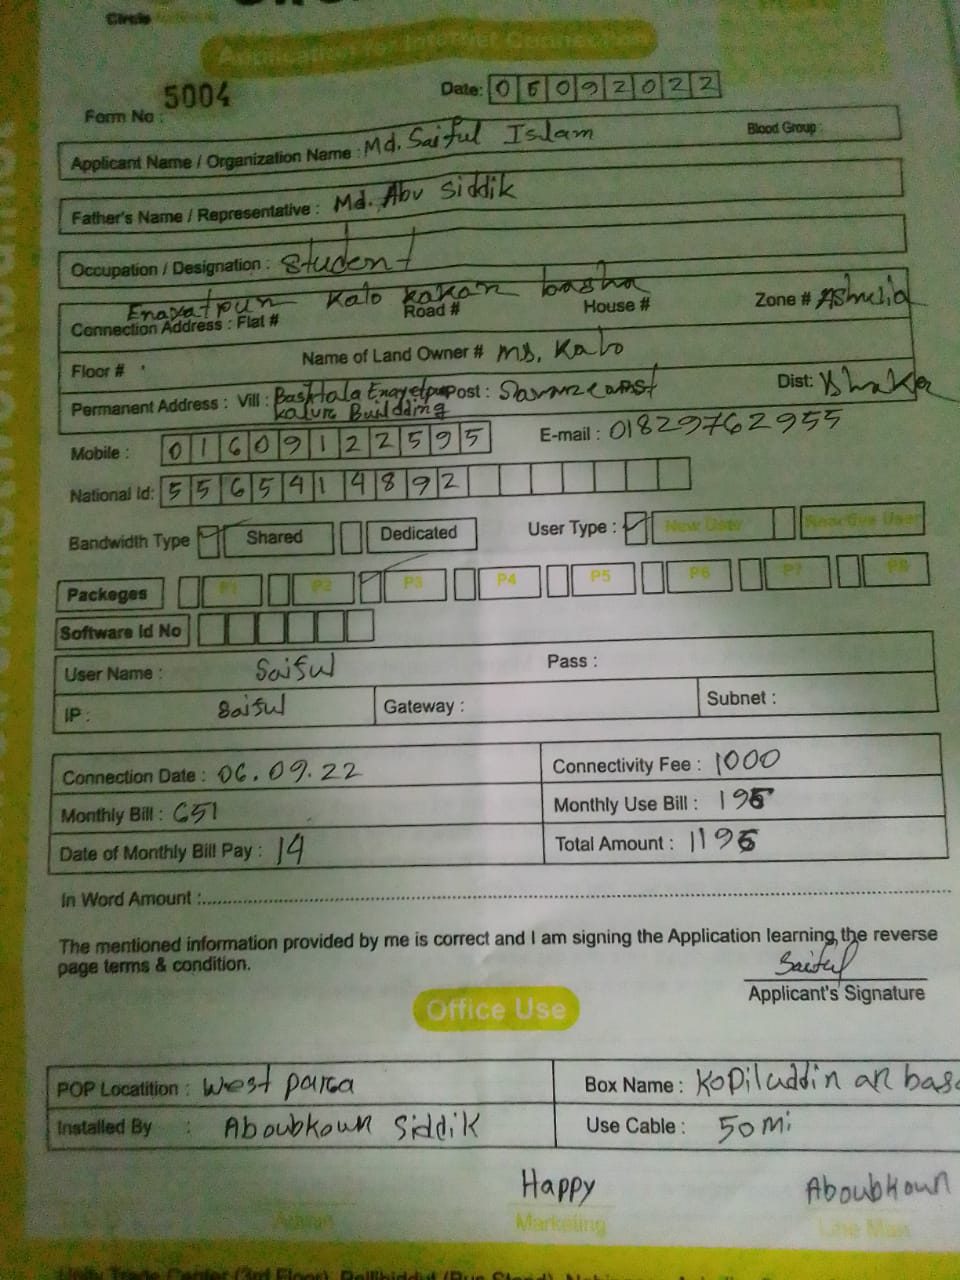 Circle
Application for Internet Connection
Form No : 5004
Date: 06092022
Applicant Name / Organization Name : Md. Saiful Islam Blood Group :
Father's Name / Representative : Md. Abu Siddik
Occupation / Designation : Student
Enayatpur Kalo kakar basha
Connection Address : Flat # Road # House # Zone # Ashulia
Floor # Name of Land Owner # ms. Kalo
Permanent Address : Vill : Bashtala Enayetpur Post : Dist: Dhaka
Mobile : 01609122595 E-mail : 01829762955
National Id: 5565414892
Bandwidth Type Shared Dedicated User Type : New User Reactive User
Packeges P1 P2 P3 P4 P5 P6 P7 P8
Software Id No
User Name : Saiful Pass :
IP : Saiful Gateway : Subnet :
Connection Date : 06.09.22 Connectivity Fee : 1000
Monthly Bill : 651 Monthly Use Bill : 195
Date of Monthly Bill Pay : 14 Total Amount : 1195
In Word Amount :
The mentioned information provided by me is correct and I am signing the Application learning, the reverse
page terms & condition.
Saiful
Applicant's Signature
Office Use
POP Locatition : West para Box Name : Kopiluddin ar basa
Installed By : Aboubkour Siddik Use Cable : 50 Mi
Happy Aboubkour
Admin Marketing Line Man